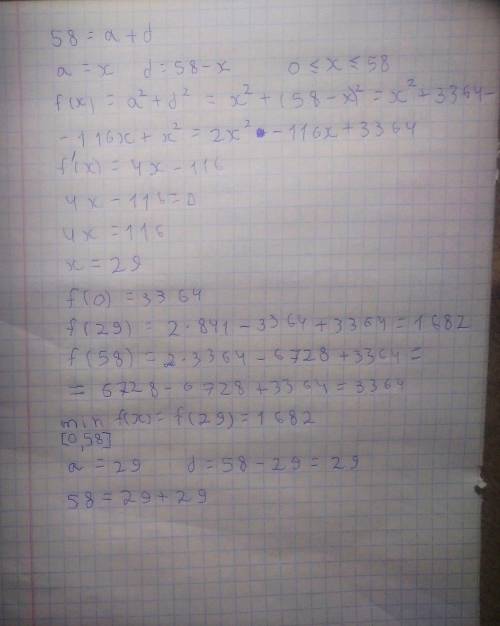 58 = a + b
a = x b = 58 - x 0 ≤ x ≤ 58
f(x) = a² + b² = x² + (58 - x)² = x² + 3364 -
- 116x + x² = 2x² - 116x + 3364
f'(x) = 4x - 116
4x - 116 = 0
4x = 116
x = 29
f(0) = 3364
f(29) = 2·841 - 3364 + 3364 = 1682
f(58) = 2·3364 - 6728 + 3364 =
= 6728 - 6728 + 3364 = 3364
min f(x) = f(29) = 1682
[0,58]
a = 29 b = 58 - 29 = 29
58 = 29 + 29